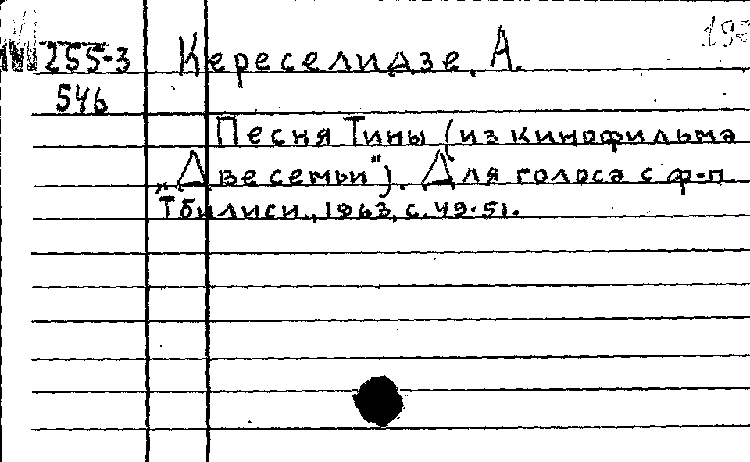 255-3 Кереселидзе, А.
546
Песня Тины (из кинофильма
„Две семьи"). Для голоса с ф-п
Тбилиси, 1963, с. 49-51.